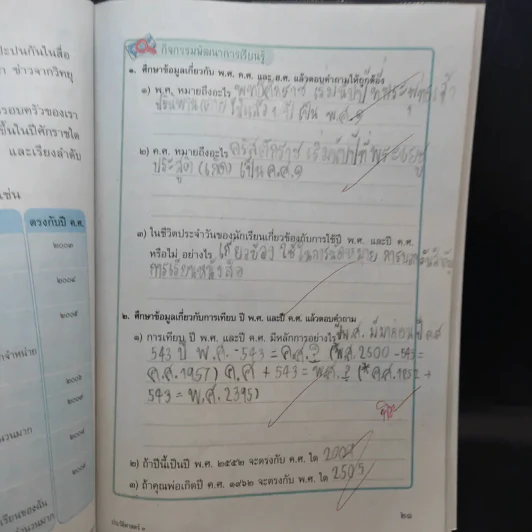 ปะปนกันในสื่อ
ข่าวจากวิทยุ
รอบครัวของเรา
ขึ้นในปีศักราชใด
และเรียงลำดับ
เช่น
ตรงกับปี ค.ศ.
๒๐๐๓
๒๐๐๔
๒๐๐๕
จำหน่าย
๒๐๐๖
๒๐๐๘
๒๐๐๙
กิจกรรมพัฒนาการเรียนรู้
๑. ศึกษาข้อมูลเกี่ยวกับ พ.ศ. ค.ศ. และ ฮ.ศ. แล้วตอบคำถามให้ถูกต้อง
๑) พ.ศ. หมายถึงอะไร พุทธศักราช เริ่มนับปีที่พระพุทธเจ้า
ปรินิพพาน(ตาย) ไปแล้ว ๑ ปี เป็น พ.ศ.๑
๒) ค.ศ. หมายถึงอะไร คริสต์ศักราช เริ่มนับปีที่พระเยซู
ประสูติ (เกิด) เป็น ค.ศ.๑
๓) ในชีวิตประจำวันของนักเรียนเกี่ยวข้องกับการใช้ปี พ.ศ. และปี ค.ศ.
หรือไม่ อย่างไร เกี่ยวข้อง ใช้ในการ
การเรียนหนังสือ
๒. ศึกษาข้อมูลเกี่ยวกับการเทียบ ปี พ.ศ. และปี ค.ศ. แล้วตอบคำถาม
๑) การเทียบ ปี พ.ศ. และปี ค.ศ. มีหลักการอย่างไร ปี พ.ศ. มีมาก่อนปี ค.ศ
543 ปี พ.ศ. -543 = ค.ศ.? (*พ.ศ. 2500 -543 =
ค.ศ.1957) ค.ศ + 543 = พ.ศ.? (* ค.ศ.1852 +
543 = พ.ศ. 2395)
๒) ถ้าปีนี้เป็นปี พ.ศ. ๒๕๕๒ จะตรงกับ ค.ศ. ใด 2009
๓) ถ้าคุณพ่อเกิดปี ค.ศ. ๑๙๖๒ จะตรงกับปี พ.ศ. ใด 2505
๒๑
ประวัติศาสตร์ ๓